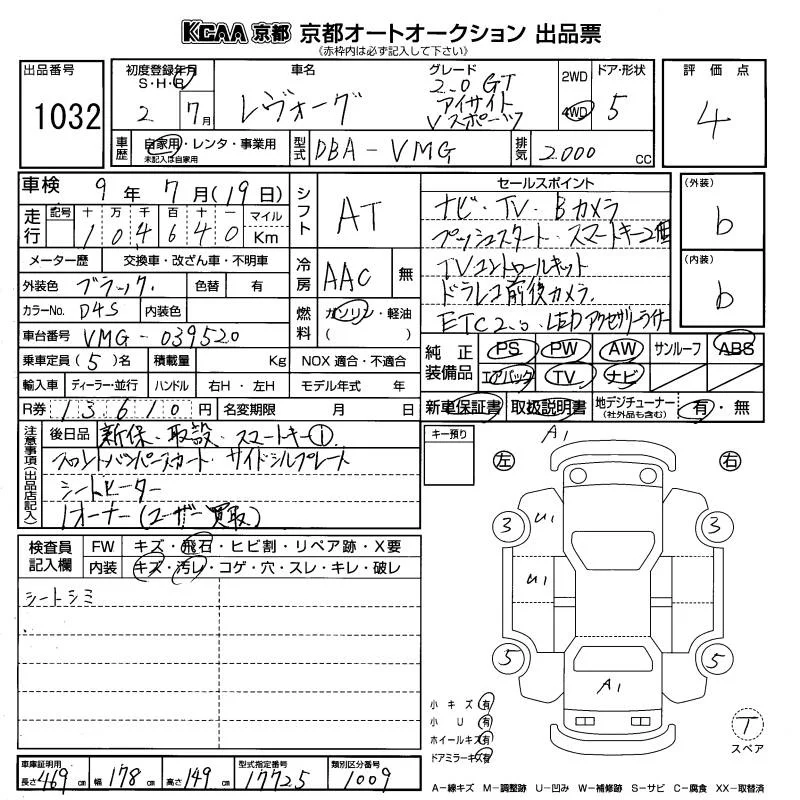 KCAA 京都 京都オートオークション 出品票
(赤枠内は必ず記入して下さい)
出品番号
1032
初度登録年月
S・H・R
2 年 7月
車名
レヴォーグ
グレード
2.0 GT
アイサイト
Vスポーツ
2WD
4WD
ドア・形状
5
評価点
4
車歴
自家用・レンタ・事業用
未記入は自家用
型式
DBA-VMG
排気
2000 CC
車検 9年 7月(19日)
走行
記号 十 万 千 百 十 一 マイル
1 0 4 6 4 0 Km
シフト
AT
メーター歴 交換車・改ざん車・不明車
外装色 ブラック 色替 有
冷房
AAC 無
カラーNo. D4S 内装色
燃料
ガソリン・軽油
( )
車台番号 VMG-039520
乗車定員(5)名 積載量 Kg NOX適合・不適合
輸入車 ディーラー・並行 ハンドル 右H・左H モデル年式 年
R券 13610円 名変期限 月 日
セールスポイント
ナビ・TV・Bカメラ
プッシュスタート・スマートキー2個
TVコントロールキット
ドラレコ前後カメラ
ETC2.0・LEDアクセサリーライナー
(外装)
b
(内装)
b
純正装備品
PS PW AW サンルーフ ABS
エアバック TV ナビ
新車保証書 取扱説明書 地デジチューナー(社外品も含む) 有・無
注意事項(出品店記入)
後日品 新保・取説・スマートキー①
フロントバンパースカート・サイドシルプレート
シートヒーター
1オーナー(ユーザー買取)
キー預り
検査員記入欄
FW キズ・飛石・ヒビ割・リペア跡・X要
内装 キズ・汚レ・コゲ・穴・スレ・キレ・破レ
シートシミ
A1
左 右
3 U1 3
U1
5 5
A1
小キズ 有
小U 有
ホイールキズ 有
ドアミラーキズ 有
T
スペア
車庫証明用
長さ 469cm 幅 178cm 高さ 149cm
型式指定番号
17725
類別区分番号
1009
A-線キズ M-調整跡 U-凹み W-補修跡 S-サビ C-腐食 XX-取替済